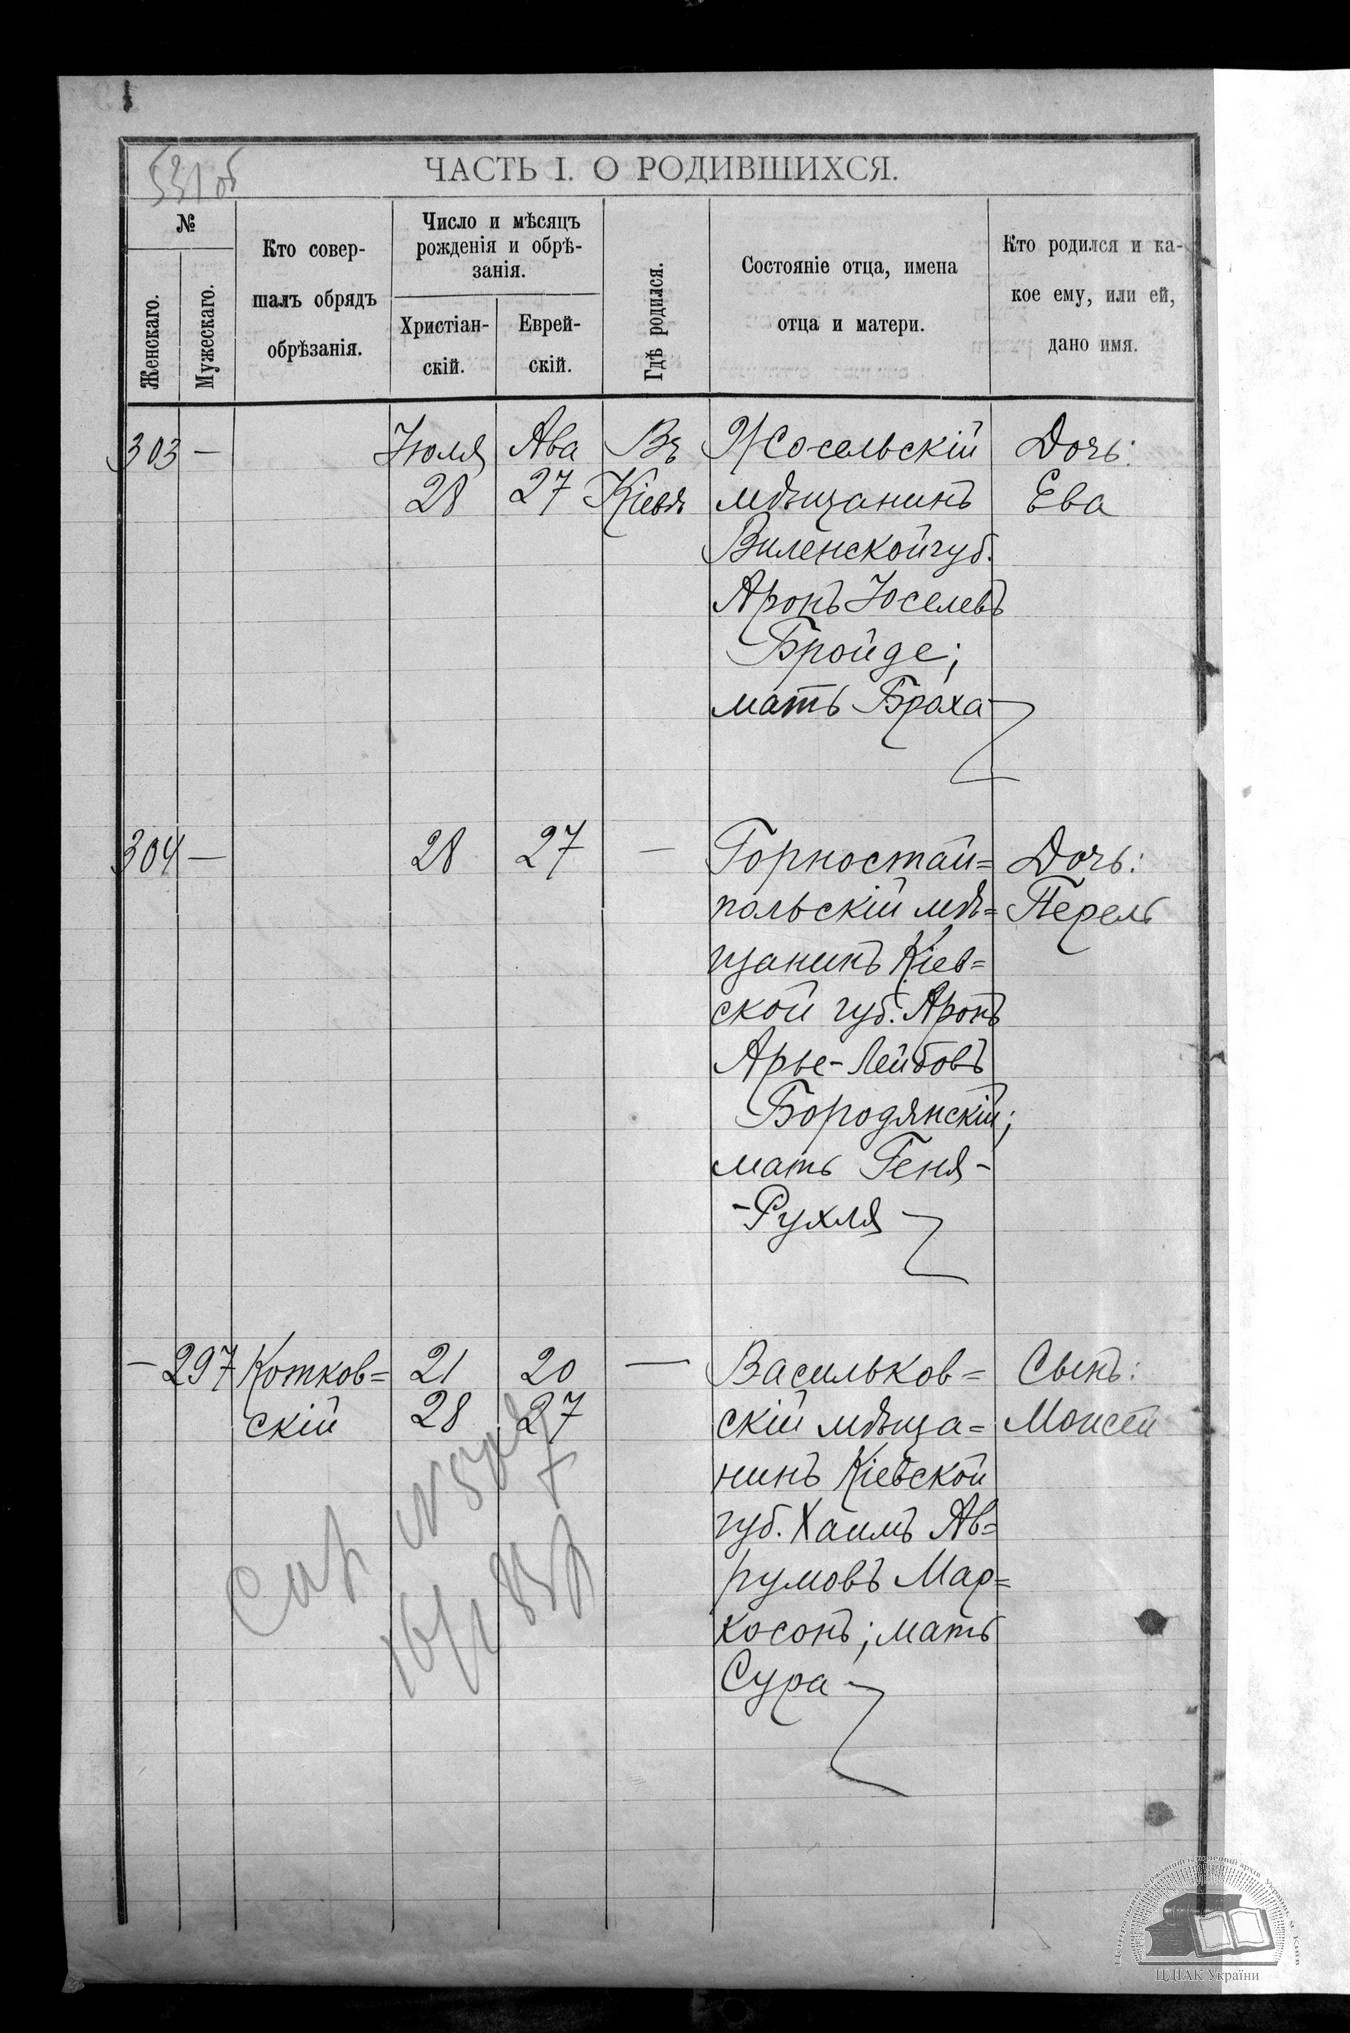 531 об
ЧАСТЬ I. О РОДИВШИХСЯ.
№
Женскаго.
Мужескаго.
Кто совер-
шалъ обрядъ
обрѣзанія.
Число и мѣсяцъ
рожденія и обрѣ-
занія.
Христіан-
скій.
Еврей-
скій.
Гдѣ родился.
Состояніе отца, имена
отца и матери.
Кто родился и ка-
кое ему, или ей,
дано имя.
303 — Іюля Ава Въ Жосельскій Дочь:
28 27 Кіевѣ мѣщанинъ Ева
Виленской губ.
Аронъ Іоселевъ
Бройде;
мать Броха
304 — 28 27 — Горностай=
польскій мѣ=
щанинъ Кіев=
ской губ. Аронъ
Арье-Лейбовъ
Бородянскій;
мать Геня-
-Рухля
Дочь:
Перель
— 297 Котков=
скій
21 20 —
28 27
Васильков=
скій мѣща=
нинъ Кіевской
губ. Хаимъ Ав=
румовъ Мар=
косонъ; мать
Сура
Сынъ:
Моисей
ЦДІАК України